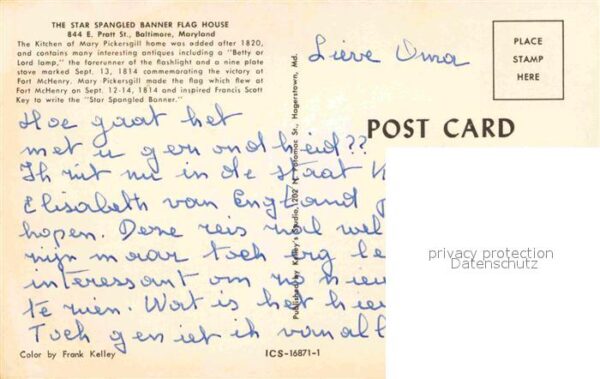 THE STAR SPANGLED BANNER FLAG HOUSE
844 E. Pratt St., Baltimore, Maryland
The Kitchen of Mary Pickersgill home was added after 1820,
and contains many interesting antiques including a "Betty or
Lord lamp," the forerunner of the flashlight and a nine plate
stove marked Sept. 13, 1814 commemorating the victory at
Fort McHenry. Mary Pickersgill made the flag which flew at
Fort McHenry on Sept. 12-14, 1814 and inspired Francis Scott
Key to write the "Star Spangled Banner."
Lieve Oma
PLACE
STAMP
HERE
POST CARD
Hoe gaat het
met u gezondheid??
Ik zit nu in de staat
Elisabeth van Engeland
hopen. Deze reis zal wel
zijn maar toch erg
interessant om zo
te zien. Wat is het
Toch geniet ik van all
Published by Kelley's Studio, 1202 N. Potomac St., Hagerstown, Md.
privacy protection
Datenschutz
Color by Frank Kelley
ICS-16871-1